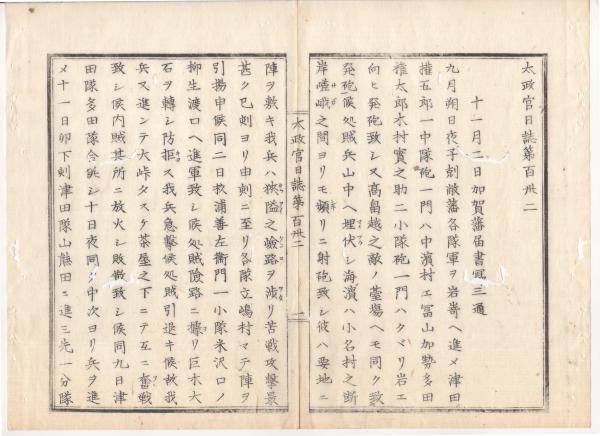 太政官日誌第百卅二
十一月二日加賀藩届書冩三通
九月朔日夜子刻敝藩各隊軍ヲ岩﨑ヘ進メ津田
權五郎一中隊砲一門ハ中濱村ヱ冨山加勢多田
權太郎木村實之助二小隊砲一門ハタバリ岩ヱ
向ヒ発砲致シ又髙畠越之敵ノ臺場ヘモ同ク致
発砲候処賊兵山中ヘ埋伏シ海濱ハ小名村之断
岸嵯峨之間ヨリモ頻リニ射砲致シ彼ハ要地ニ
太政官日誌第百卅二
一
陣ヲ敷キ我兵ハ狹隘之嶮路ヲ渉リ苦戦攻撃最
甚ク巳刻ヨリ申刻ニ至リ各隊立嶋村マテ陣ヲ
引揚申候同二日杉浦善左衛門一小隊米沢口ノ
柳生渡口ヘ進軍致シ候処賊險路ニ據リ巨木大
石ヲ轉シ防拒ス我兵急撃候処賊引退キ候故我
兵又進ンテ大峠タスケ茶屋之下ニテ互ニ奮戦
致シ候内賊其所ニ放火シ敗散致シ候同九日津
田隊多田隊合併シ十日夜同夕中次ヨリ兵ヲ進
メ十一日卯下刻津田隊山熊田ニ進ミ先一分隊